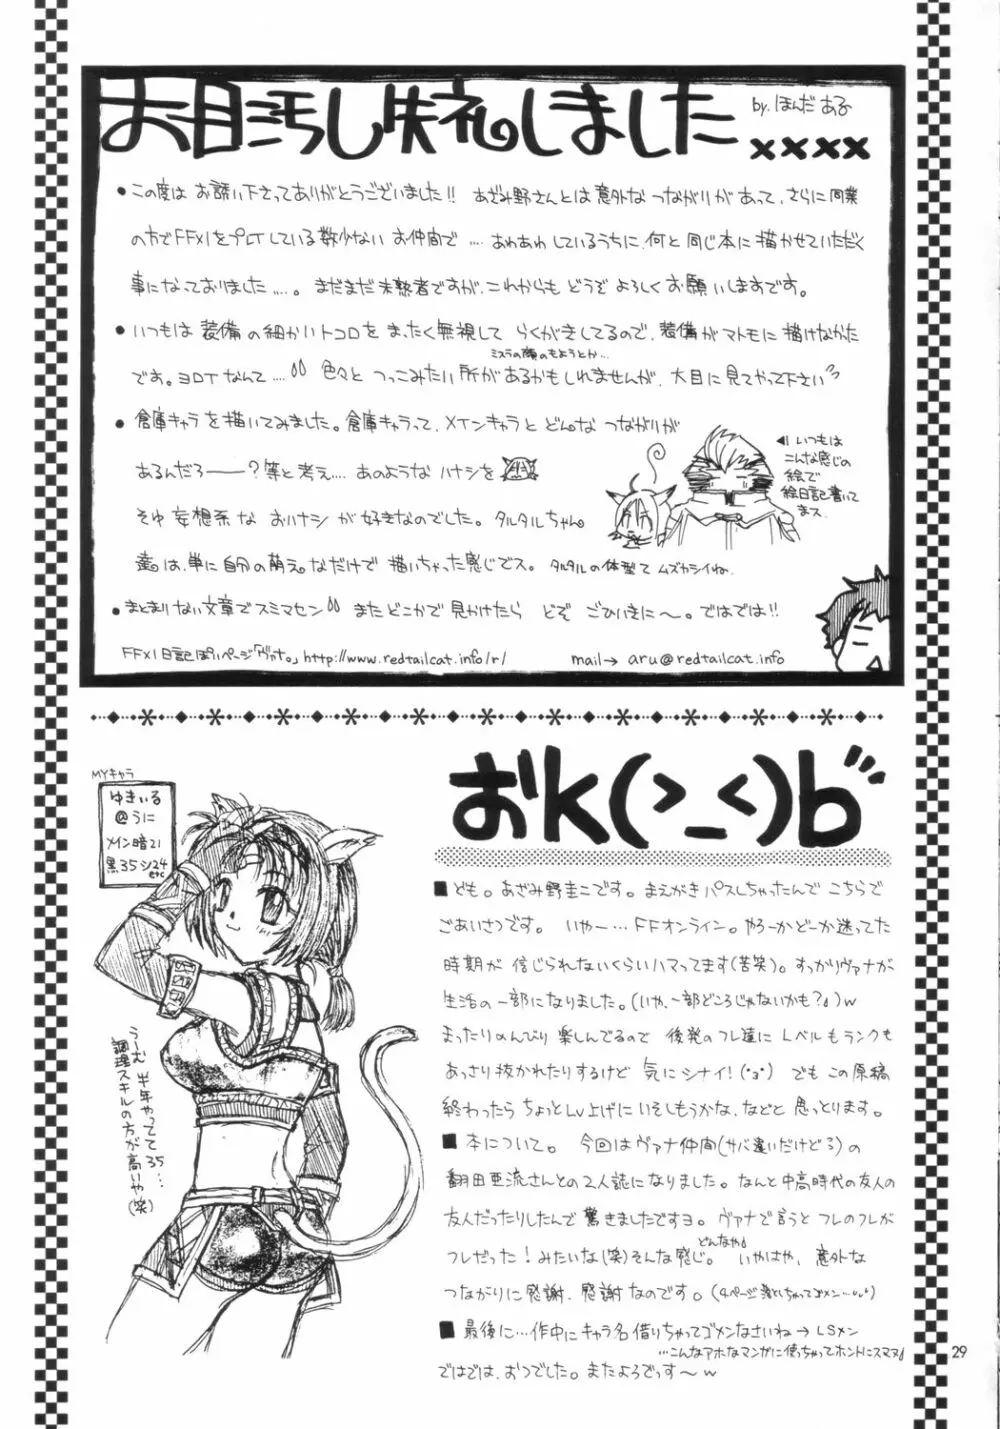 お目汚し失礼しました
by. ほんだ ある
××××
●この度は お誘い下さってありがとうございました!! あざみ野さんとは意外な つながりが あって、さらに同業
の方でFFXIをプレイしている数少ない お仲間で …. あわあわしているうちに、何と同じ本に描かせていただく
事になっておりました….。まだまだ未熟者ですが、これからも どうぞ よろしく お願いしますです。
●いつもは 装備の細かいトコロを まったく無視して らくがきしてるので、装備がマトモに描けなかた
ミスラの顔のもようとか…
です。ヨロイなんて…. 色々と つっこみたい所があるかもしれませんが、大目に見てやって下さい
●倉庫キャラを描いてみました。倉庫キャラって、メインキャラと どんな つながりが
あるんだろー——?等と考え…. あのような ハナシを
そゆ 妄想系な おハナシ が好きなのでした。タルタルちゃん
達は、単に自分の萌え。なだけで 描いちゃった感じでス。タルタルの体型て ムズカシイね.
◀いつもは
こんな感じの
絵で
絵日記書いて
まス.
●まとまりない文章でスミマセン またどこかで見かけたら どぞ ごひいきに〜。ではでは!!
FFXI 日記ぽいページ「ヴァナ。」http://www.redtailcat.info/r/ mail→ aru@redtailcat.info
MYキャラ
ゆきいる
@うに
メイン暗21
黒35 シ24
etc
うーむ 半年やってて35…
調理スキルの方が高いや(笑)
おk(>_<)b
■ども。あざみ野圭二です。まえがきパスしちゃったんで こちらで
ごあいさつです。いやー…FFオンライン。やろーかどーか迷ってた
時期が 信じられないくらいハマってます(苦笑)。すっかりヴァナが
生活の一部になりました。(いや、一部どころじゃないかも?♪)w
まったりのんびり 楽しんでるので 後発のフレ達に Lベルもランクも
あっさり抜かれたりするけど 気にシナイ!(・з・) でも この原稿
終わったら ちょっとLv上げに いそしもうかな、などと 思っとります。
■本について。今回はヴァナ仲間(サバ違いだけどろ)の
翻田亜流さんとの2人誌になりました。なんと中高時代の友人の
友人だったりしたんで 驚きましたですヨ。ヴァナで言うと フレのフレが
どんなや♪
フレだった!みたいな(笑)そんな感じ。いやはや、意外な
つながりに感謝、感謝なのです。(4ページ落としちゃってゴメン…
■最後に…作中にキャラ名借りちゃってゴメンなさいね→LSメン
…こんなアホなマンガに使っちゃってホントにスマヌ♪
ではでは、おつでした。またよろでっす〜w
29